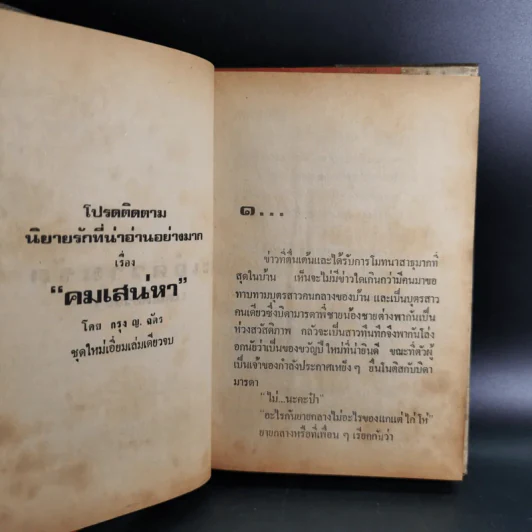 โปรดติดตาม
นิยายรักที่น่าอ่านอย่างมาก
เรื่อง
"คมเสน่หา"
โดย กรุง ญ. ฉัตร
ชุดใหม่เอี่ยมเล่มเดียวจบ
๑...
ข่าวที่ตื่นเต้นและได้รับการโมทนาสาธุมากที่
สุดในบ้าน เห็นจะไม่มีข่าวใดเกินกว่ามีคนมาขอ
ทาบทามบุตรสาวคนกลางของบ้าน และเป็นบุตรสาว
คนเดียวซึ่งบิดามารดาพี่ชายน้องชายต่างพากันเป็น
ห่วงสวัสดิภาพ กลัวจะเป็นสาวทึนทึกจึงพากันโล่ง
อกนัยว่าเป็นของขวัญปีใหม่ที่น่ายินดี ขณะที่ตัวผู้
เป็นเจ้าของกำลังประกาศเหยงๆ ยืนในดิสกับบิดา
มารดา
"ไม่...นะคะป๋า"
"อะไรกันยายกลางไม่อะไรของแกแต่ไก่โห่"
ยายกลางหรือที่เพื่อน ๆ เรียกกันว่า